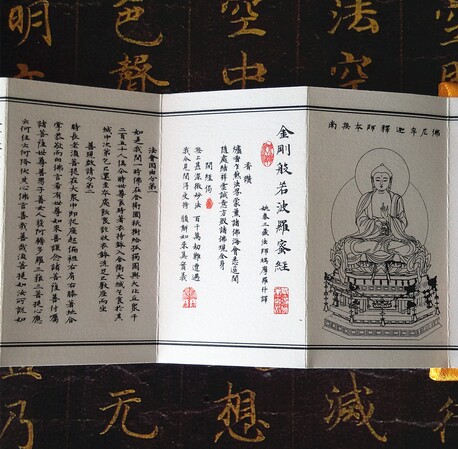 法空
空中
色聲
明
南無本師釋迦牟尼佛
金剛般若波羅蜜經
姚秦三藏法師鳩摩羅什譯
香讚
爐香乍爇法界蒙薰諸佛海會悉遙聞
隨處結祥雲誠意方殷諸佛現全身
開經偈
無上甚深微妙法 百千萬劫難遭遇
我今見聞得受持 願解如來真實義
法會因由分第一
如是我聞一時佛在舍衛國祇樹給孤獨園與大比丘眾千
二百五十人俱爾時世尊食時著衣持鉢入舍衛大城乞食於其
城中次第乞已還至本處飯食訖收衣鉢洗足已敷座而坐
善現啟請分第二
時長老須菩提在大眾中即從座起偏袒右肩右膝著地合
掌恭敬而白佛言希有世尊如來善護念諸菩薩善付囑
諸菩薩世尊善男子善女人發阿耨多羅三藐三菩提心應
云何住云何降伏其心佛言善哉善哉須菩提如汝所說如
減
想
无
乃